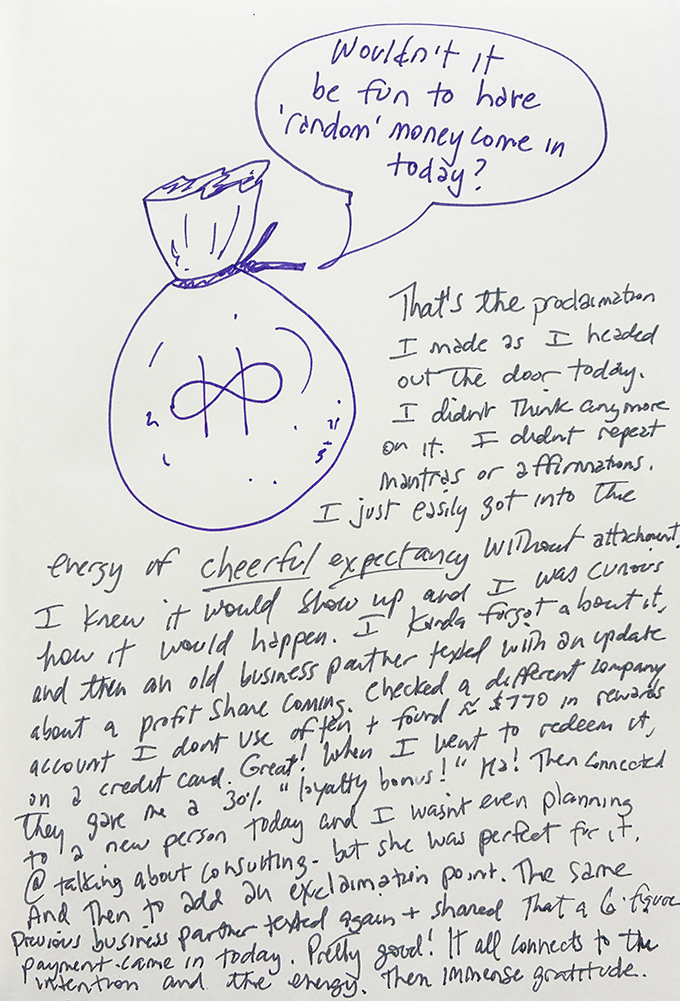 Wouldn't it
be fun to have
'random' money come in
today?
That's the proclaimation
I made as I headed
out the door today.
I didn't think anymore
on it. I didnt repeat
mantras or affirmations.
I just easily got into the
energy of cheerful expectancy without attachment.
I knew it would show up and I was curious
how it would happen. I kinda forgot about it,
and then an old business partner texted with an update
about a profit share coming. Checked a different company
account I dont use often + found ≈ $770 in rewards
on a credit card. Great! When I went to redeem it,
they gave me a 30% "loyalty bonus!" Ha! Then connected
to a new person today and I wasnt even planning
@ talking about consulting - but she was perfect for it.
And then to add an exclaimation point. The same
previous business partner texted again + shared that a 6-figure
payment came in today. Pretty good! It all connects to the
intention and the energy. Then immense gratitude.